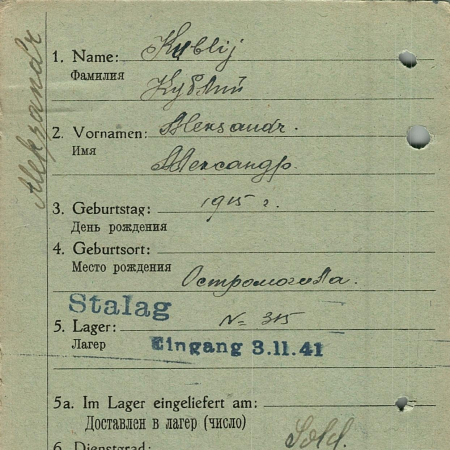 Aleksandr
1. Name: Kublij
Фамилия Кублий
2. Vornamen: Aleksandr.
Имя Александр.
3. Geburtstag: 1915 г.
День рождения
4. Geburtsort:
Место рождения Остромогила.
Stalag
5. Lager: № 315
Лагер Eingang 3.11.41
5a. Im Lager eingeliefert am:
Доставлен в лагер (число)
6. Dienstgrad: Sold.